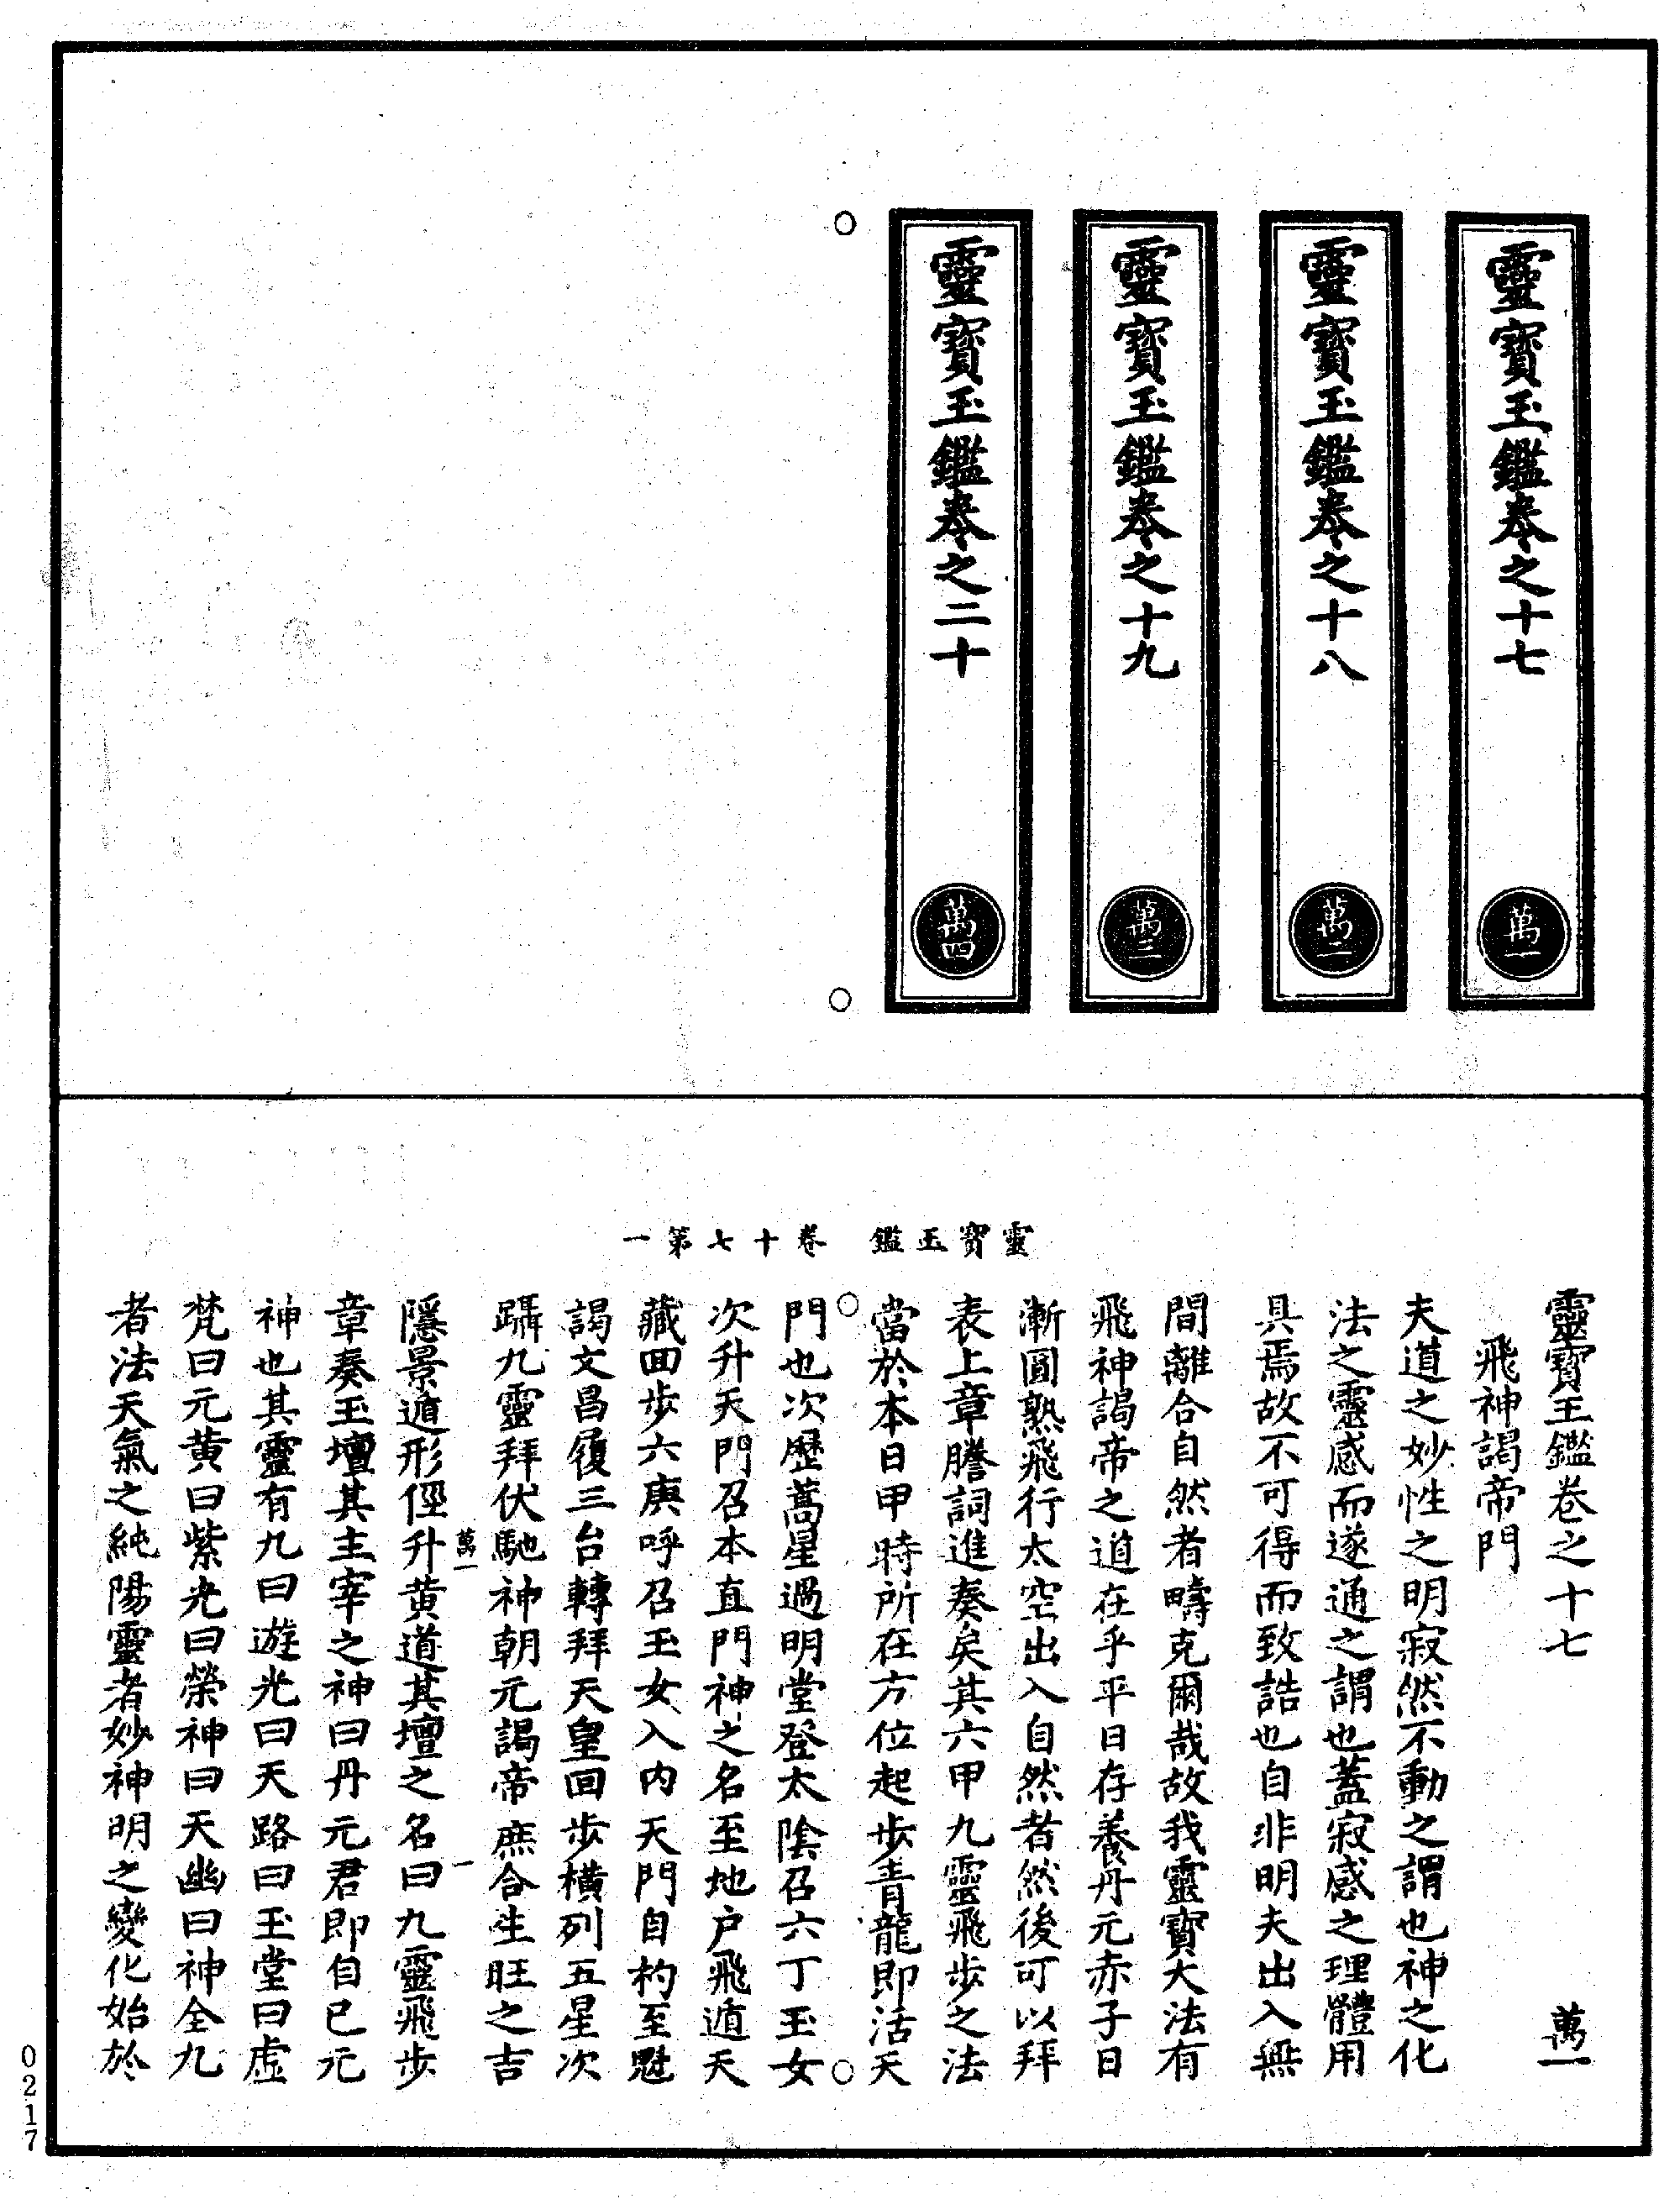 靈寶玉鑑卷之十七
萬一
靈寶玉鑑卷之十八
萬二
靈寶玉鑑卷之十九
萬三
靈寶玉鑑卷之二十
萬四
靈寶玉鑑 卷十七第一
靈寶玉鑑卷之十七 萬一
飛神謁帝門
夫道之妙性之明寂然不動之謂也神之化
法之靈感而遂通之謂也蓋寂感之理體用
具焉故不可得而致詰也自非明夫出入無
間離合自然者疇克爾哉故我靈寶大法有
飛神謁帝之道在乎平日存養丹元赤子日
漸圓熟飛行太空出入自然者然後可以拜
表上章謄詞進奏矣其六甲九靈飛步之法
當於本日甲時所在方位起步青龍即活天
門也次歷蒿星過明堂登太陰召六丁玉女
次升天門召本直門神之名至地户飛遁天
藏回步六庚呼召玉女入内天門自杓至魁
謁文昌履三台轉拜天皇回步横列五星次
躡九靈拜伏馳神朝元謁帝庶合生旺之吉
萬一 一
隱景遁形徑升黄道其壇之名曰九靈飛步
章奏玉壇其主宰之神曰丹元君即自己元
神也其靈有九曰遊光曰天路曰玉堂曰虚
梵曰元黄曰紫光曰榮神曰天幽曰神全九
者法天氣之純陽靈者妙神明之變化始於
0217